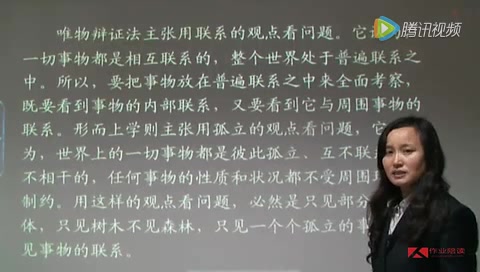 腾讯视频
唯物辩证法主张用联系的观点看问题。它
一切事物都是相互联系的，整个世界处于普遍联系之
中。所以，要把事物放在普遍联系之中来全面考察，
既要看到事物的内部联系，又要看到它与周围事物的
联系。形而上学则主张用孤立的观点看问题，它
为，世界上的一切事物都是彼此孤立、互不联
不相干的，任何事物的性质和状况都不受周围
制约。用这样的观点看问题，必然是只见部分
体，只见树木不见森林，只见一个个孤立的事
见事物的联系。
作业陪读